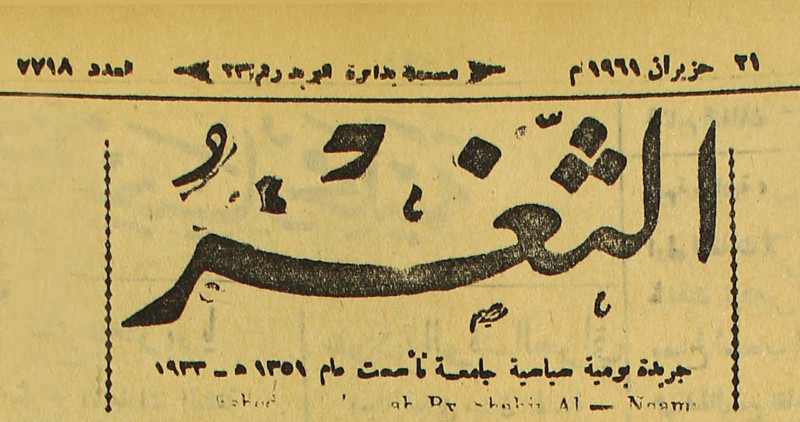 ٢١ حزيران ١٩٦١م مسجلة بدائرة البريد رقم ٢٣ العدد ٧٧١٨
الثغر
جريدة يومية سياسية جامعة تأسست عام ١٣٥١ هـ - ١٩٣٣
Al — Nnamr